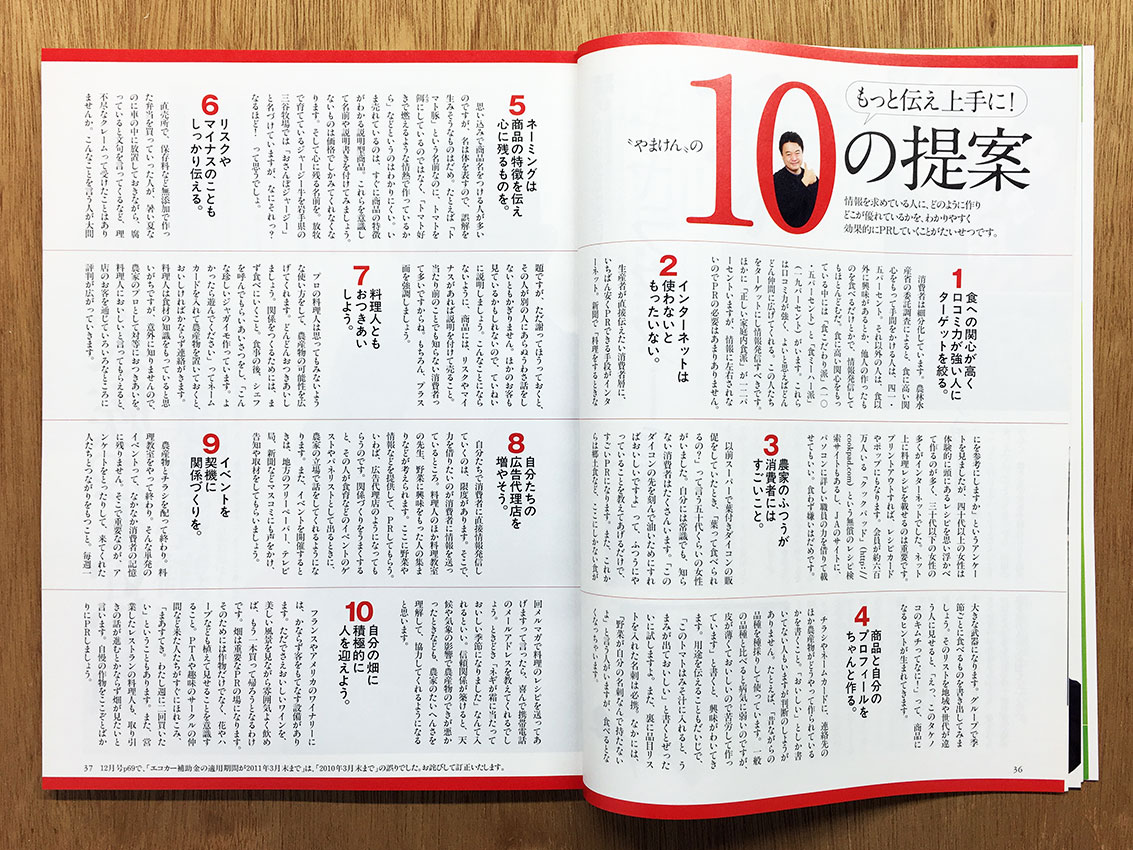 もっと伝え上手に!
〝やまけん〟の
10の提案
情報を求めている人に、どのように作り
どこが優れているかを、わかりやすく
効果的にPRしていくことがたいせつです。
1
食への関心が高く
口コミ力が強い人に
ターゲットを絞る。
消費者は細分化しています。農林水
産省の委託調査によると、食に高い関
心をもって手間をかける人は、四一・
五パーセント。それ以外の人は、食以
外に興味があるとか、他人の作ったも
のを食べるだけとかで、情報発信して
もほとんどむだ。食に高い関心をもっ
ている中には、「食こだわり派」(一〇
・五パーセント)と「食ミーハー派」
(一九パーセント)がいます。これら
は口コミ力が強く、よいと思えばどん
どん仲間に広げてくれる。この人たち
をターゲットにし情報発信すべきです。
ほかに「正しい家庭内食派」が一二パ
ーセントいますが、情報に左右されな
いのでPRの必要はあまりありません。
2
インターネットは
使わないと
もったいない。
生産者が直接伝えたい消費者層に、
いちばん安くPRできる手段がインタ
ーネット。新聞で「料理をするときな
にを参考にしますか」というアンケー
トを見ましたが、四十代以上の女性は
体験的に頭にあるレシピを思い浮かべ
て作るのが多く、三十代以下の女性の
多くがインターネットでした。ネット
上に料理レシピを載せるのは重要です。
プリントアウトすれば、レシピカード
やポップにもなります。会員が約六百
万人いる「クックパッド」(http://
cookpad.com)という無償のレシピ検
索サイトもあるし、JAのサイトに、
パソコンに詳しい職員の力を借りて載
せてもいい。食わず嫌いはだめです。
3
農家のふつうが
消費者には
すごいこと。
以前スーパーで葉付きダイコンの販
促をしていたとき、「葉って食べられ
るの?」って言う五十代くらいの女性
がいました。自分には常識でも、知ら
ない消費者はたくさんいます。「この
ダイコンの先を刻んで油いためにすれ
ばおいしいですよ」って、ふつうにや
っていることを教えてあげるだけで、
すごいPRになります。また、これか
らは郷土食など、ここにしかない食が
大きな武器になります。グループで季
節ごとに食べるものを書き出してみま
しょう。そのリストを地域や世代が違
う人に見せると、「えっ、このタケノ
コのキムチってなに?」って、商品に
なるヒントが生まれてきます。
4
商品と自分の
プロフィールを
ちゃんと作る。
チラシやネームカードに、連絡先の
ほか農産物をどうやって作られている
かを書くこと。「おいしい」としか書
いてありませんが判断のしようが
ありません。たとえば、「昔ながらの
品種を種採りして使っています。一般
の品種と比べると病気に弱いのですが、
皮が薄くておいしいので苦労して作っ
ています」と書くと、興味がわいてき
ます。用途を伝えることもだいじで、
「このトマトはみそ汁に入れると、う
まみが出ておいしい」と書くとぜった
いに試しますよ。また、裏に品目リス
トを入れた名刺は必携。なかには、
「野菜が自分の名刺なんで持たない
よ」と言う人がいますが、食べるとな
くなっちゃいます。
36
5
ネーミングは
商品の特徴を伝え
心に残るものを。
思い込みで商品名をつける人が多い
のですが、名は体を表すので、誤解を
生みそうなものはだめ。たとえば「ト
マト豚」という名前なのに、トマトを
飼にしているのではなく、「トマト好
きで燃えるような情熱で作っているか
ら」などというのはわかりにくい。い
ま売れているのは、すぐに商品の特徴
がわかる説明型商品。これらを意識し
て名前や説明書きを付けてみましょう。
ないものは価格でしかみてくれなくな
ります。そして心に残る名前を。放牧
で育てているジャージー牛を岩手県の
三谷牧場では、「おさんぽジャージー」
と名づけていますが、なにそれっ?
なるほど!って思うでしょう。
6
リスクや
マイナスのことも
しっかり伝える。
直売所で、保存料など無添加で作っ
た弁当を買っていった人が、暑い夏な
のに車の中に放置しておきながら、腐
っていると文句を言ってくるなど、理
不尽なクレームって受けたことはあり
ませんか。こんなことを言う人が大問
題ですが、ただ謝ってほうっておくと、
その人が別の人にあらぬうわさ話をし
ないともかぎりません。ほかのお客も
見ているかもしれないので、ていねい
に説明しましょう。こんなことになら
ないように、商品には、リスクやマイ
ナスがあれば説明を付けて売ること。
当たり前のことでも知らない消費者っ
て多いですからね。もちろん、プラス
面を強調しましょう。
7
料理人とも
おつきあい
しよう。
プロの料理人は思ってもみないよう
な使い方をして、農産物の可能性を広
げてくれます。どんどんおつきあいし
ましょう。関係をつくるためには、ま
ず食べにいくこと。食事の後、シェフ
を呼んでもらいあいさつをし、「こん
な珍しいジャガイモ作っています。よ
かったら遊んでください」ってネーム
カードを入れて農産物を置いておくと、
おいしければかならず連絡がきます。
料理人は食材の知識をもっていると思
いがちですが、意外に知りませんので、
農家のプロとして対等におつきあいを。
料理人においしいと言ってもらえると、
店のお客を通じていろいろなところに
評判が広がっていきます。
8
自分たちの
広告代理店を
増やそう。
自分たちで消費者に直接情報発信し
ていくのは、限度があります。そこで、
力を借りたいのが消費者に情報を送っ
ているところ。料理人のほか料理教室
の先生、野菜に興味をもった人の集ま
りなどが考えられます。ここに野菜や
情報などを提供して、PRしてもらう。
いわば、広告代理店のようになっても
らうのです。関係づくりをうまくする
と、その人が食育などのイベントのゲ
ストやパネリストとして出るときに、
農家の立場で話をしてくれるようにな
ります。また、イベントを開催すると
きは、地方のフリーペーパー、テレビ
局、新聞などマスコミにも声をかけ、
告知や取材をしてもらいましょう。
9
イベントを
契機に
関係づくりを。
農産物とチラシを配って終わり。料
理教室をやって終わり。そんな単発の
イベントって、なかなか消費者の記憶
に残りません。そこで重要なのが、ア
ンケートをとったりして、来てくれた
人たちとつながりをもつこと。毎週一
回メルマガで料理のレシピを送ってあ
げますって言ったら、喜んで携帯電話
のメールアドレスを教えてくれるでし
ょう。ときどき「ネギが霜に当たって
おいしい季節になりました」なんて入
れるといい。信頼関係が築けると、天
候や気象の影響で農産物のできが悪か
ったときなども、農家のたいへんさを
理解して、協力してくれるようになる
と思います。
10
自分の畑に
積極的に
人を迎えよう。
フランスやアメリカのワイナリーに
は、かならず客をもてなす設備があり
ます。ただでさえおいしいワインを、
美しい風景を見ながら雰囲気よく飲め
ば、もう一本買って帰ろうとなるわけ
です。畑は重要なPRの場になります。
そのためには作物だけでなく、花やハ
ーブなども植えて見せることを意識す
ること。PTAや趣味のサークルの仲
間など来た人たちがすぐにほれこみ、
「まあすてき、わたし週に二回買いた
い」ということもあります。また、営
業したレストランの料理人も、取り引
きの話が進むとかならず畑が見たいと
言います。自慢の作物をここぞとばか
りにPRしましょう。
37 12月号p69で、「エコカー補助金の適用期間が2011年3月末まで」は、「2010年3月末まで」の誤りでした。お詫びして訂正いたします。